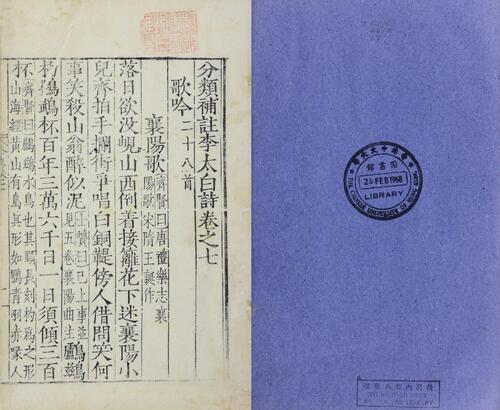 分類補註李太白詩卷之七
歌吟二十八首
襄陽歌
齊賢曰唐禮樂志襄
陽歌宋隋王誕作
落日欲没峴山西倒着接䍦花下迷襄陽小
兒齊拍手攔街爭唱白銅鞮傍人借問笑何
事笑殺山翁醉似泥
士贇曰已上事並
見五卷襄陽曲註
鸕鷀
杓鸚鵡杯百年三萬六千日一日須傾三百
杯
齊賢曰鸕鷀水鳥也其頸長刻杓爲之形
山海經黄山有鳥其形如鴞青羽赤喙人
香港中文大學
圖書館
26 FEB 1968
LIBRARY
THE CHINESE UNIVERSITY OF HONG KONG